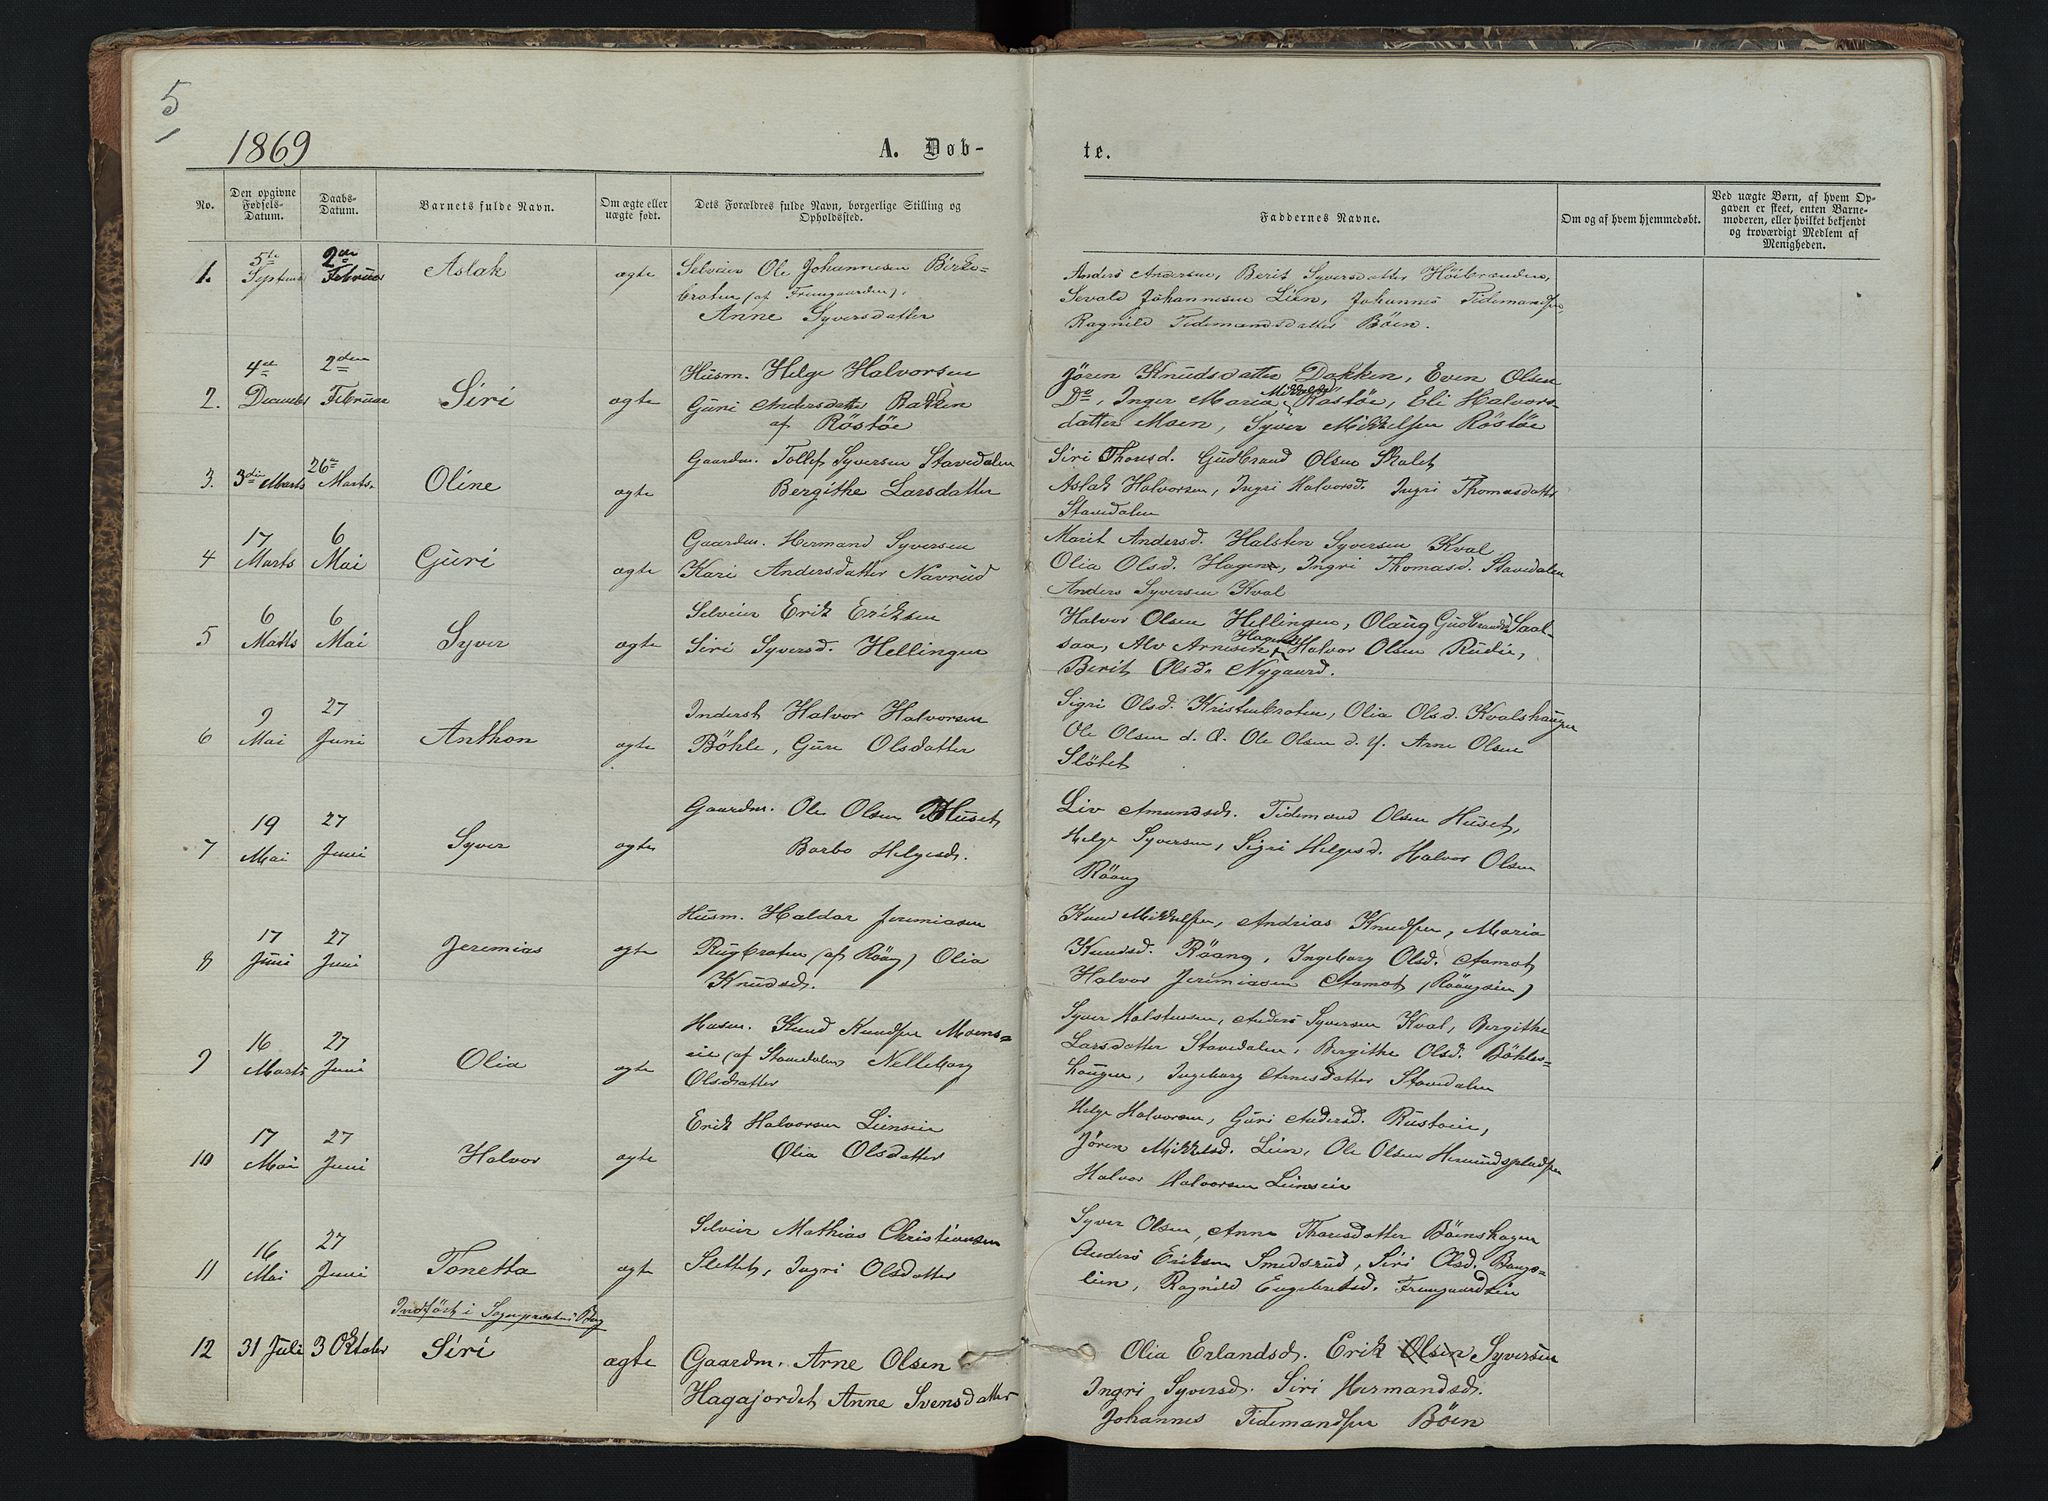 5
1869
A. Døb-
te.
No.
Den opgivne Fødsels-Datum.
Daabs-Datum.
Barnets fulde Navn.
Om ægte eller uægte født.
Dets Forældres fulde Navn, borgerlige Stilling og Opholdssted.
Faddernes Navne.
Om og af hvem hjemmedøbt.
Ved uægte Børn, af hvem Op-
gaven er skeet, enten Barne-
moderen, eller hvilket bekjendt
og troværdigt Medlem af
Menigheden.
1. 5te Septemb 2den Februar Aslak ægte
Selveier Ole Johannesen Birke-
braten (af Fremgaarden),
Anne Syversdatter
Anders Andersen, Berit Syversdatter Höibraaden,
Sevald Johannesen Lien, Johannes Tidemandsen,
Ragnild Tidemandsdatter Böen.
2. 4de December 2den Februar Siri ægte
Husm. Helge Halvorsen
Guri Andersdatter Bakken
af Röstöe
Jören Knudsdatter Dokken, Even Olsen
Do, Inger Maria Mikkelsdr Röstöe, Eli Halvors-
datter Moen, Syver Mikkelsen Röstöe
3. 3die Marts 26de Marts. Oline ægte
Gaardm. Tollef Syversen Stavedalen
Bergithe Larsdatter
Siri Thorsd. Gudbrand Olsen Skalet
Aslak Halvorsen, Ingri Halvorsd. Ingri Thomasdatter
Stavedalen
4 17 Marts 6 Mai Guri ægte
Gaardm. Hermand Syversen
Kari Andersdatter Navrud
Marit Andersd. Halsten Syversen Kval
Olia Olsd. Hagen, Ingri Thomasd. Stavedalen
Anders Syversen Kval
5 6 Marts 6 Mai Syver ægte
Selveier Erik Eriksen
Siri Syversd. Hellingen
Halvor Olsen Hellingen, Olaug Gudbrandsd Saal-
saa, Alv Arnesen Hagen, Halvor Olsen Rudie,
Berit Olsd. Nygaard.
6 9 Mai 27 Juni Anthon ægte
Inderst Halvor Halvorsen
Böhle, Guri Olsdatter
Sigri Olsd. Kristenbraten, Olia Olsd. Kvalshaugen
Ole Olsen d. Æ. Ole Olsen d. Y. Arne Olsen
Slötet
7 19 Mai 27 Juni Syver ægte
Gaardm. Ole Olsen Huset
Barbo Helgesd.
Liv Amundsd. Tidemand Olsen Huset,
Helge Syversen, Sigri Helgesd. Halvor Olsen
Röang
8 17 Juni 27 Juni Jeremias ægte
Husm. Haldor Jeremiasen
Rugbraten (af Röang) Olia
Knudsd.
Knud Mikkelsen, Andrias Knudsen, Maria
Knudsd. Röang, Ingeborg Olsd. Aamot
Halvor Jeremiasen Aamot (Röangseie)
9 16 Marts 27 Juni Olia ægte
Husm. Knud Knudsen Moens-
eie (af Stavedalen) Nelleborg
Olsdatter
Syver Halstensen, Anders Syversen Kval, Bergithe
Larsdatter Stavedalen, Bergithe Olsd. Böhles-
haugen, Ingeborg Arnesdatter Stavedalen
10 17 Mai 27 Juni Halvor ægte
Erik Halvorsen Lienseie
Olia Olsdatter
Helge Halvorsen, Guri Andersd. Rustöeie,
Jören Mikkelsd. Lien, Ole Olsen
Halvor Halvorsen Lienseie
11 16 Mai 27 Juni Tonetta ægte
Selveier Mathias Christiansen
Slettet, Ingri Olsdatter
Syver Olsen, Anne Thorsdatter Böenshagen
Anders Eriksen Smedsrud, Siri Olsd. Bangs-
lien, Ragnild Engebretsd. Fremgaardseie
Indfört i Sognepræstens Bog
12 31 Juli 3 Oktober Siri ægte
Gaardm. Arne Olsen
Hagajordet Anne Svensdatter
Olia Erlandsd. Erik Olsen Syversen
Ingri Syversd. Siri Hermandsd.
Johannes Tidemandsen Böen